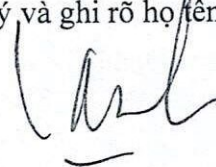 ý và ghi rõ họ tên